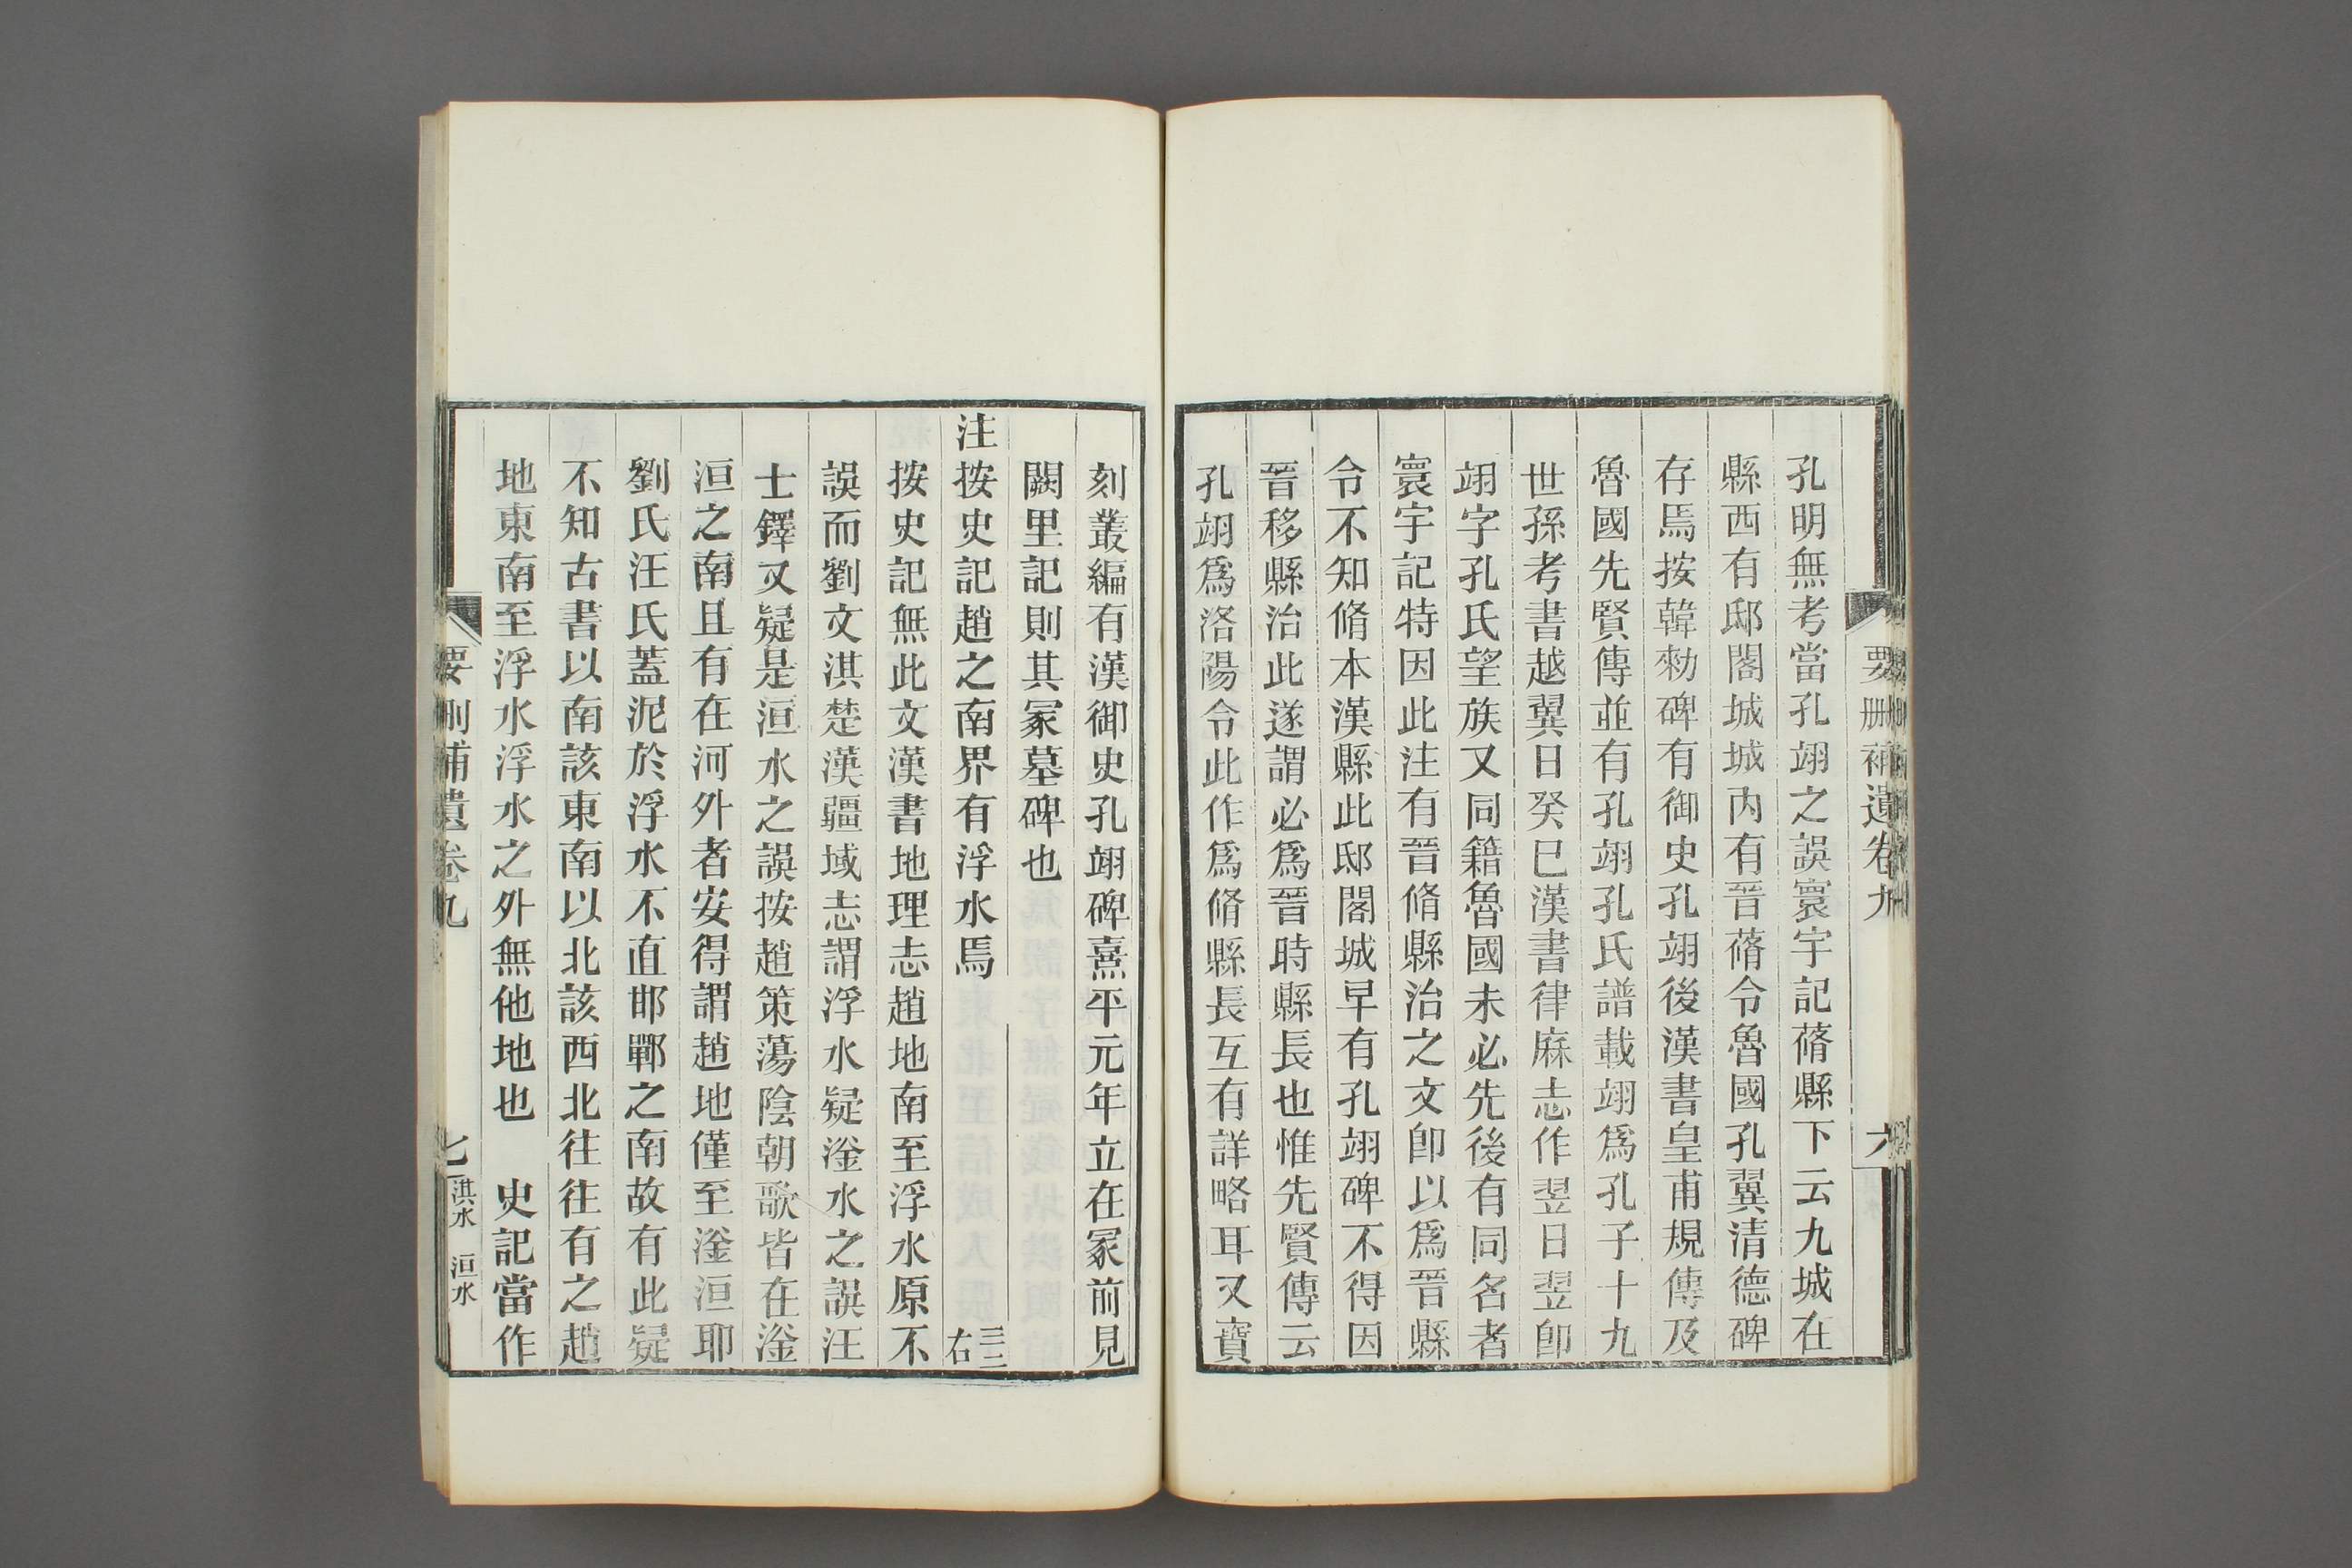 要刪補遺卷九
六
孔明無考當孔翊之誤寰宇記蓨縣下云九城在
縣西有邸閣城城內有晉蓨令魯國孔翼清德碑
存焉按韓勑碑有御史孔翊後漢書皇甫規傳及
魯國先賢傳並有孔翊孔氏譜載翊爲孔子十九
世孫考書越翼日癸巳漢書律厤志作翌日翌卽
翊字孔氏望族又同籍魯國未必先後有同名者
寰宇記特因此注有晉脩縣治之文卽以爲晉縣
令不知脩本漢縣此邸閣城早有孔翊碑不得因
晉移縣治此遂謂必爲晉時縣長也惟先賢傳云
孔翊爲洛陽令此作爲脩縣長互有詳略耳又寶
刻叢編有漢御史孔翊碑熹平元年立在冢前見
闕里記則其冢墓碑也
注按史記趙之南界有浮水焉 三三右
按史記無此文漢書地理志趙地南至浮水原不
誤而劉文淇楚漢疆域志謂浮水疑滏水之誤汪
士鐸又疑是洹水之誤按趙策蕩陰朝歌皆在滏
洹之南且有在河外者安得謂趙地僅至滏洹耶
劉氏汪氏蓋泥於浮水不直邯鄲之南故有此疑
不知古書以南該東南以北該西北往往有之趙
地東南至浮水浮水之外無他地也 史記當作
要刪補遺卷九
七 淇水 洹水